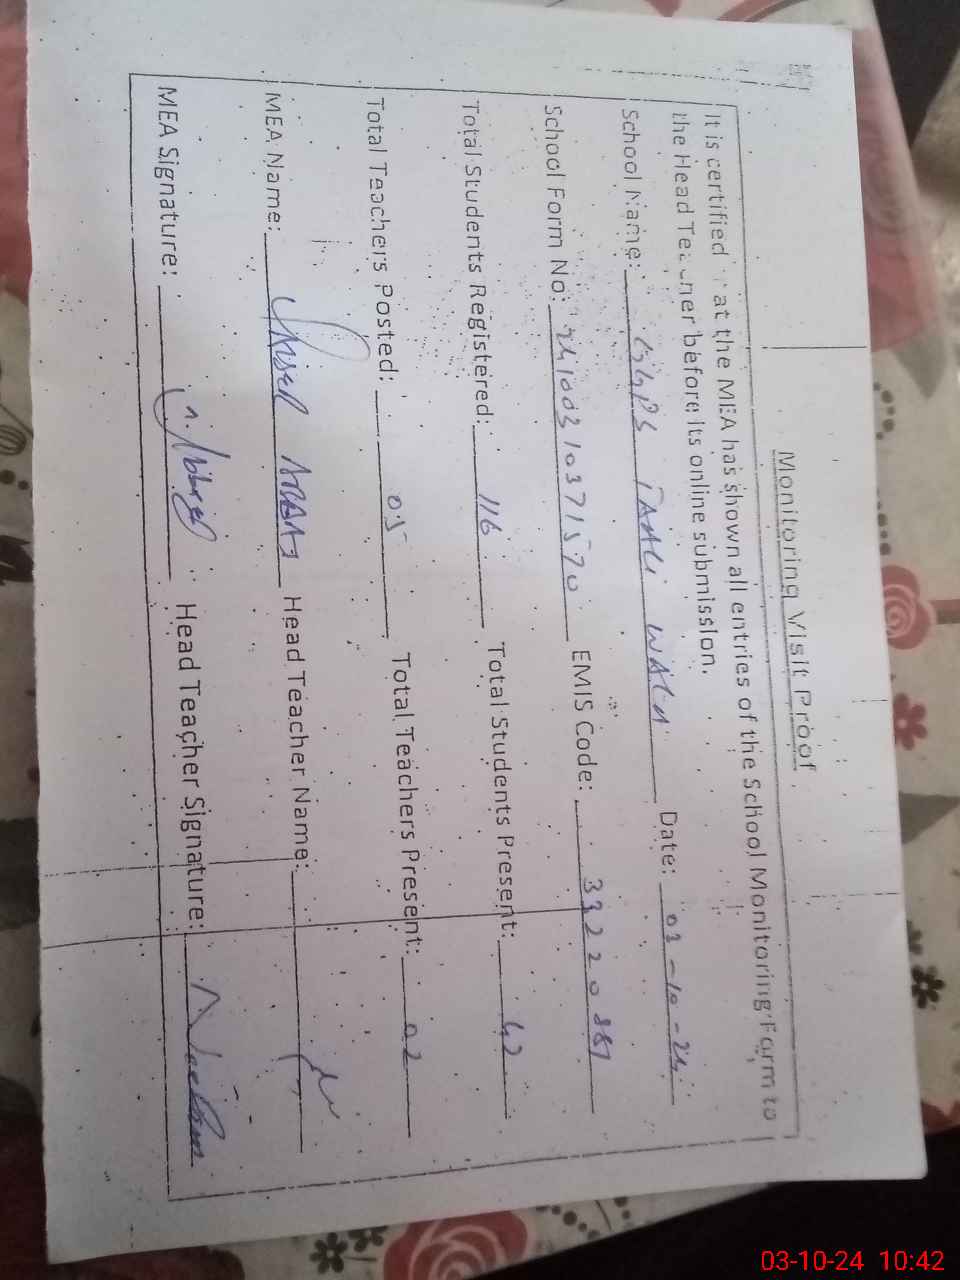 Monitoring Visit Proof
It is certified at the MEA has shown all entries of the School Monitoring Form to
the Head Teacher before its online submission.
School Name: GGPS TALLI WALA Date: 03-10-24
School Form No: 241003103715 70 EMIS Code: 33220
Total Students Registered: 116 Total Students Present: 42
Total Teachers Posted: 05 Total Teachers Present: 02
MEA Name: Head Teacher Name:
MEA Signature: Head Teacher Signature:
03-10-24 10:42